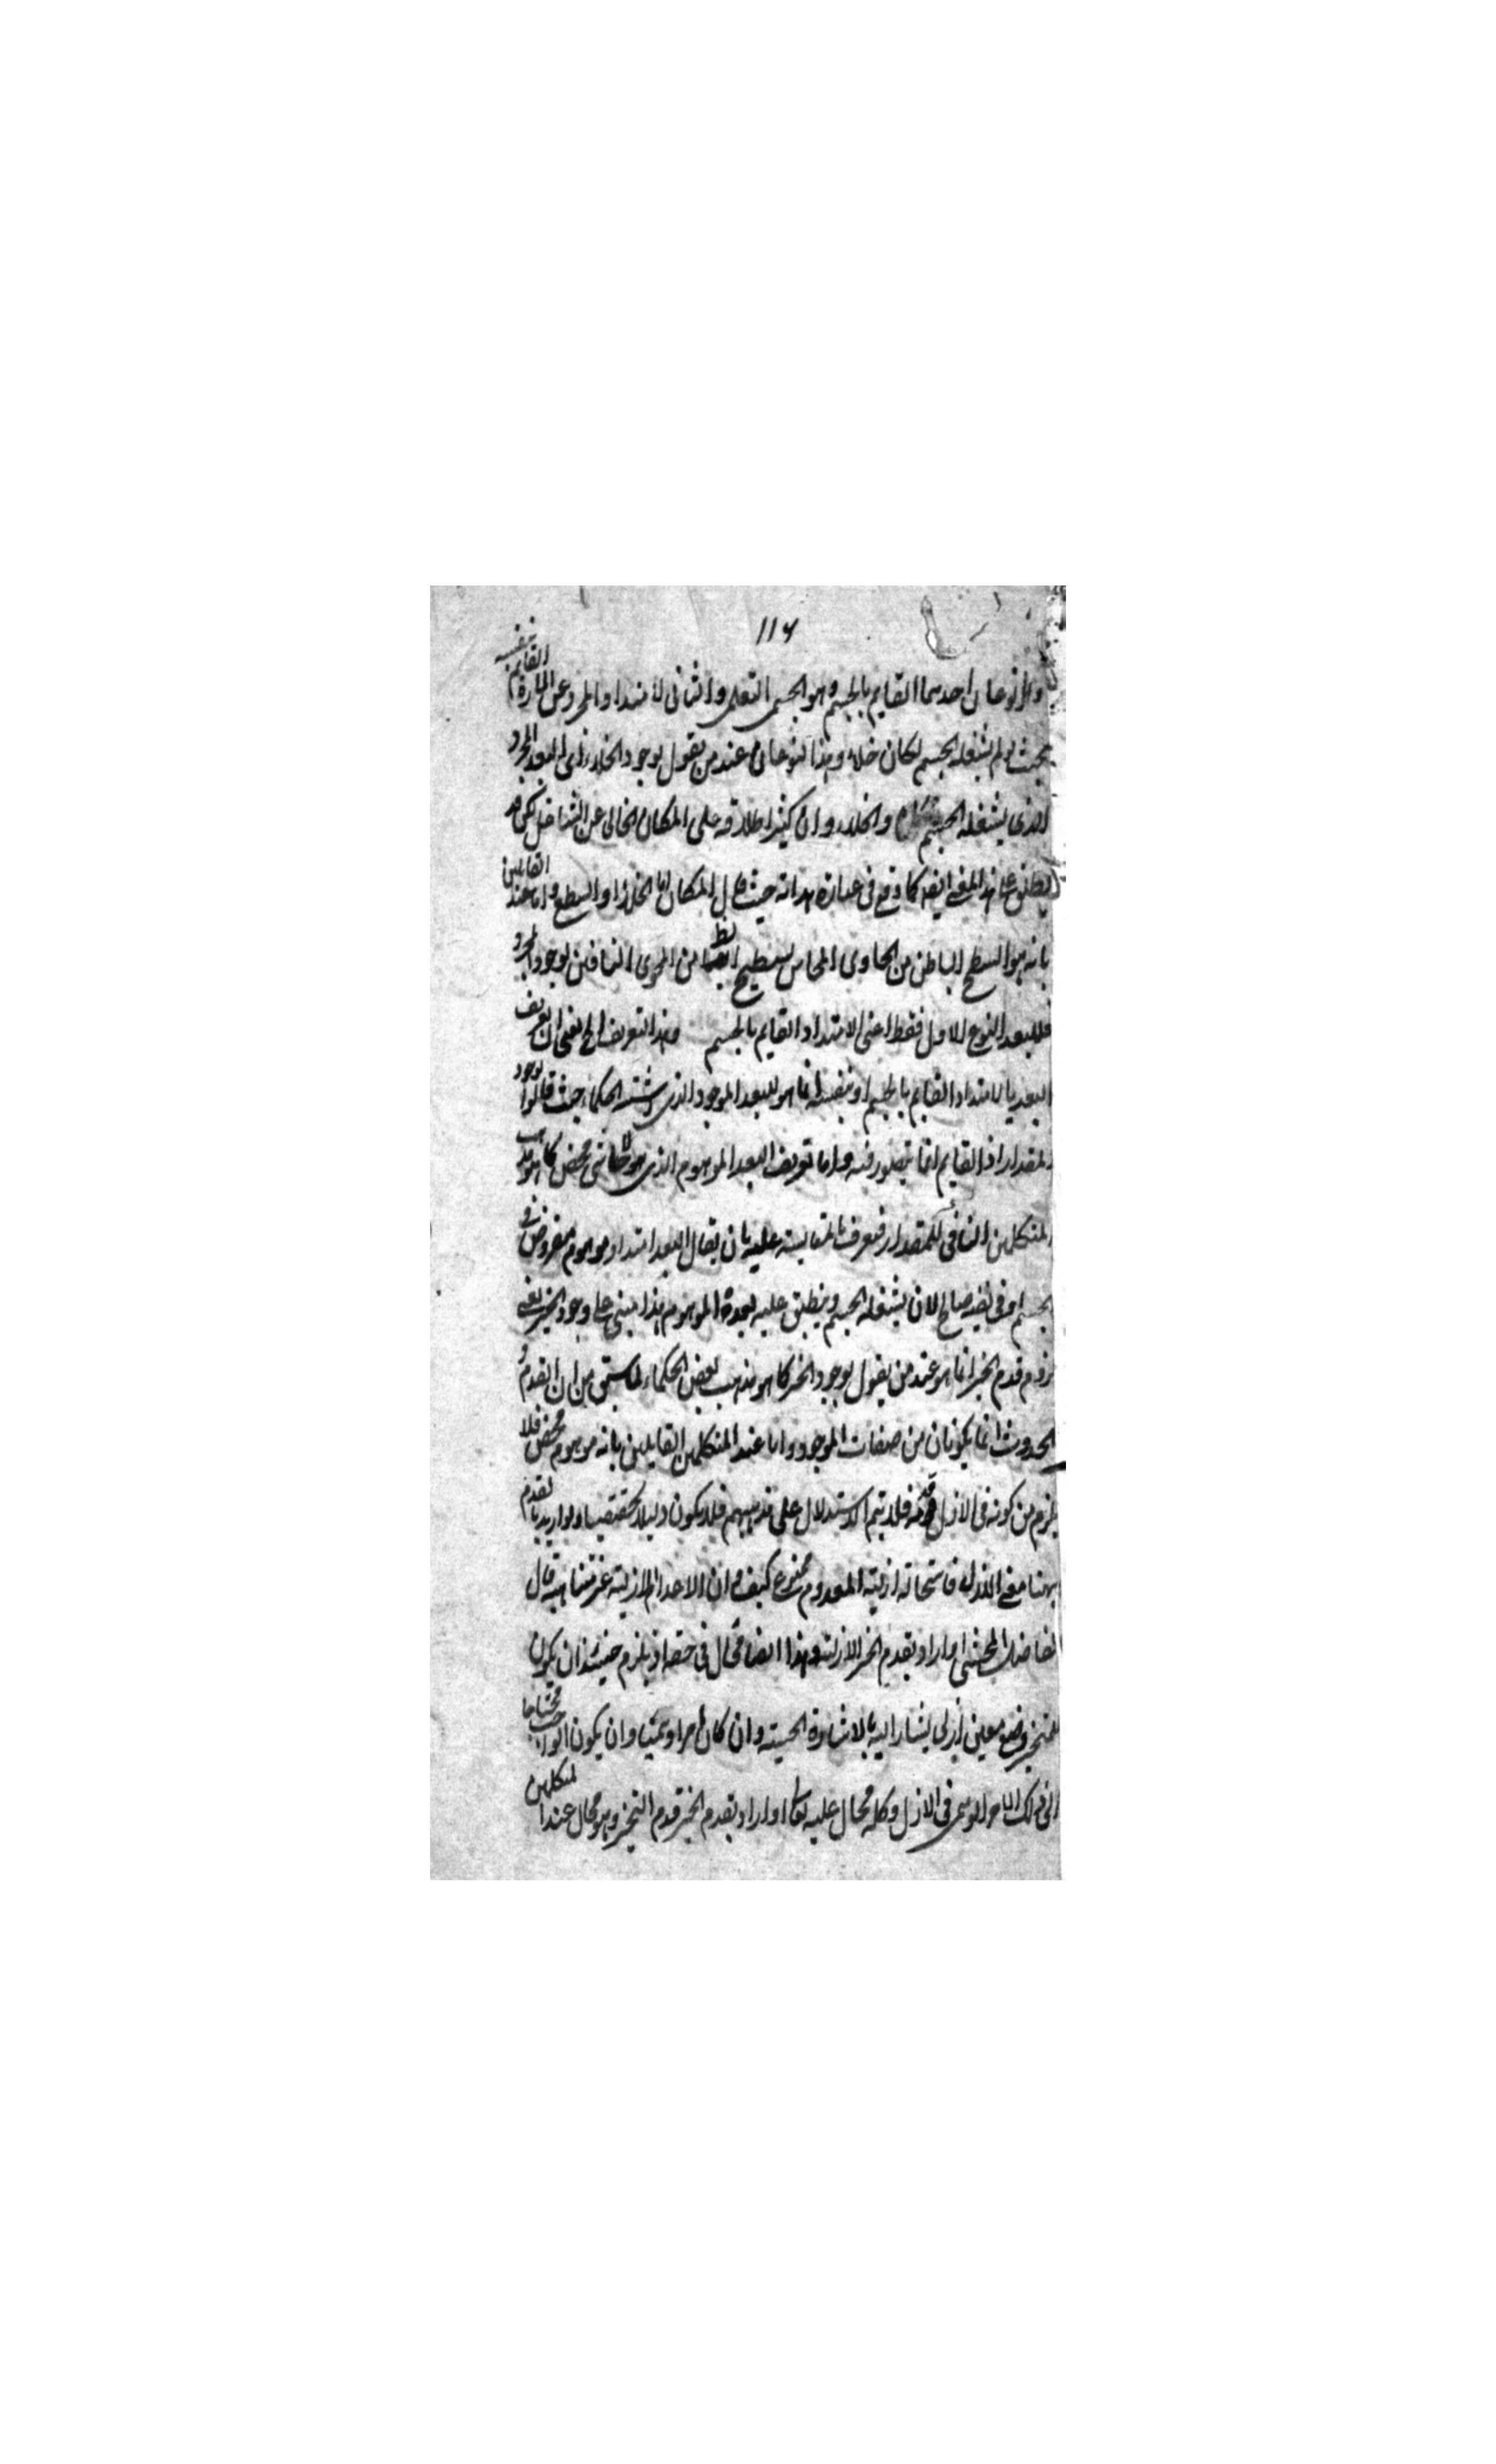 ١١٦
وله نوعان احدهما القايم بالجسم وهو الجسم التعلمى والثانى الامتداد المجرد عن المادة القايم بنفسه
بحيث لو لم يشغله الجسم لكان خلاء وهذا النوعان عند من يقول بوجود الخلاء اى البعد المجرد
الذى يشغله الجسم والخلاء وان كثر اطلاقه على المكان الخالى عن الشاغل لكن قد
يطلق على هذا المعنى ايضا كما وقع فى عبارة هداية حيث قال المكان اما الخلاء او السطح واما عند القايلين
بانه هو السطح الباطن من الحاوى المماس للسطح الظ من المحوى النافين لوجود المجرد
فللبعد النوع الاول فقط اعنى الامتداد القايم بالجسم وهذا التعريف الخ يعنى ان تعريف
البعد بالامتداد القايم بالجسم او بنفسه انما هو للبعد الموجود الذى يثبته الحكماء حيث قالوا بوجود
المقدار اذ القايم انما يتصور فيه واما تعريف البعد الموهوم الذى هو لا شى محض كما هو مذهب
المتكلمين النافى للمقدار فيعرف بالمقايسة عليه بان يقال البعد امتداد موهوم مفروض فى
الجسم او فى نفسه صالح لان يشغله الجسم وينطبق عليه بعده الموهوم هذا مبنى على وجود الحيز يعنى
لزوم قدم الحيز انما هو عند من يقول بوجود الحيز كما هو مذهب بعض الحكماء لما سبق من ان القدم و
الحدوث انما يكونان من صفات الموجود واما عند المتكلمين القايلين بانه موهوم محض فلا
يلزم من كونه فى الازل قدمه فلا يتم الاستدلال على مذهبهم فلا يكون دليلا تحقيقيا ولو اريد بالقدم
ههنا معنى الازل فاستحالة ازلية المعدوم ممنوع كيف وان الاعدام الازلية غير متناهية قال
الفاضل المحشى اما اراد بقدم الحيز الازلية وهذا ايضا محال فى حقه اذ يلزم حينئذ ان يكون
للمتحيز وضع معين ازلى يشار اليه بالاشارة الحسية وان كان امرا وهميا وان يكون الواجب محتاجا
الى ذلك الامر الوهمى فى الازل وكله محال عليه تعالى او اراد بقدم الحيز قدم التحيز وهو محال عند المتكلمين